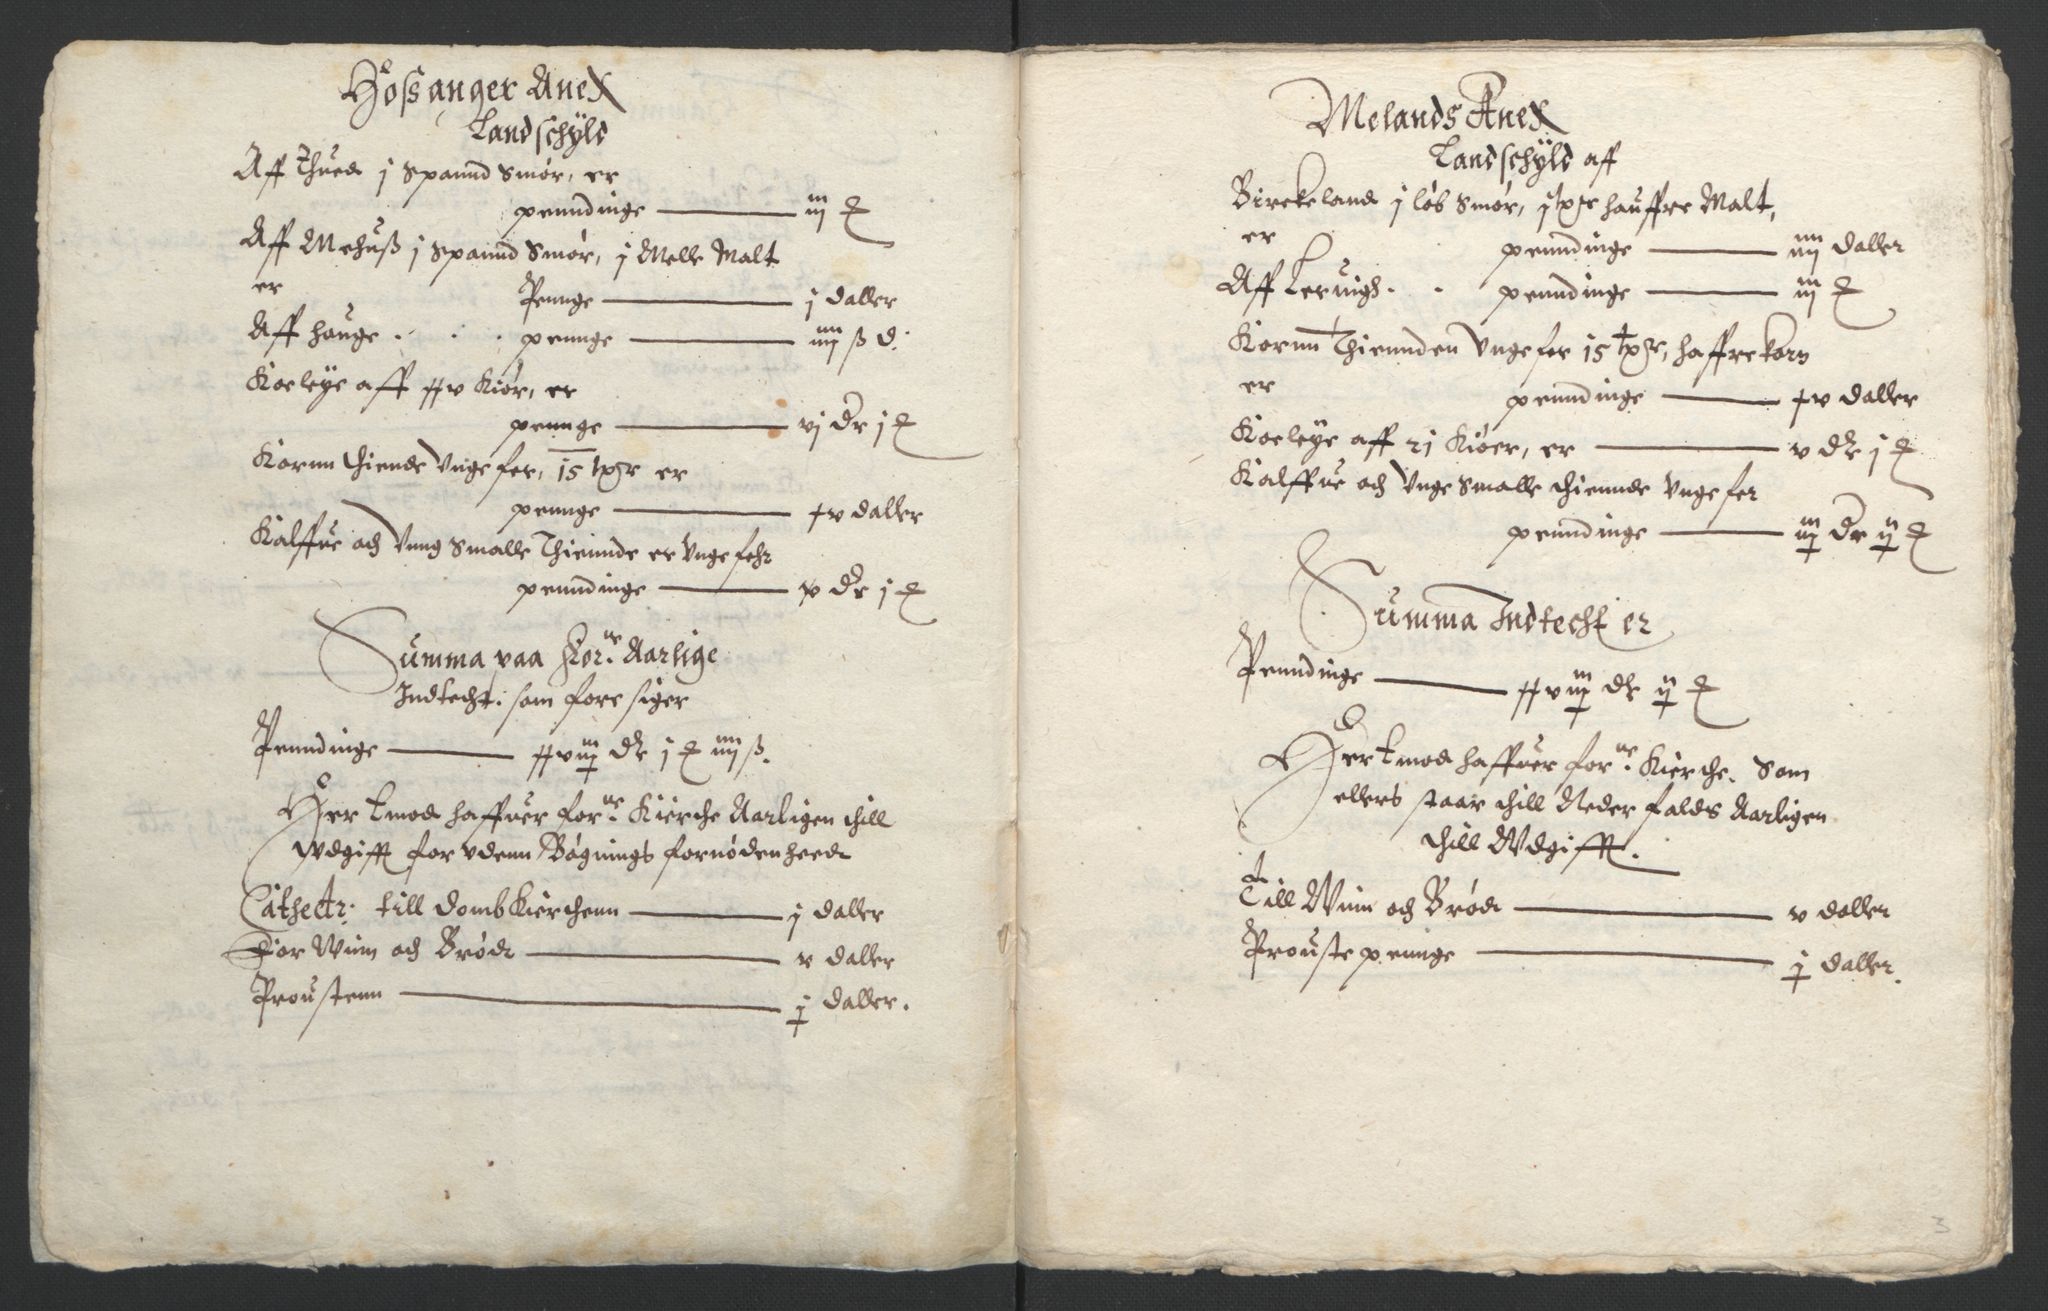 Hossanger Anex
Landschyld
Aff Thued j Spannd Smør, er
penndinge iij
Aff Mehuß j Spannd Smør, j Melle Malt
er Pennge j daller
Aff hauge . . . pennge iiij ß d.
Koeleye aff xxv Kiør, er
pennge vj dr j
Kornn thiende Unge fer, 15 er
pennge xv daller
Kalffue och Vnng Smalle Thiennde er Unge fehr
penndinge v dr j
Summa paa for:ne Aarlige
Indtecht. som fore siger
Penndinge xxviij dr j iiij ß.
Her Emod haffuer for:ne Kierche Aarligen thill
Vdgifft for vdenn Bøgnings fornødenheed
Cathedr: till Domb Kierchenn j daller
For Wiin och Brød v daller
Proustenn j daller.
Melands Anex
Landschyld aff
Birckeland j løb Smør, hauffre Malt,
er penndinge iiij daller
Aff Leruigh . . penndinge iij
Kornn Thiennden Unge fer 15 haffrekorn
er penndinge xv daller
Koeleye aff 21 Kiøer, er v dr j
Kalffue och Unge Smalle thiennde Unge fer
penndinge iij dr ij
Summa Indtecht er
Penndinge xxviij dr ij
Her Emod haffuer for:ne Kierche. Som
ellers staar thill Neder falds Aarligen
thill Udgifft.
Till Wiin och Brød v daller
Prouste pennge j daller.
3